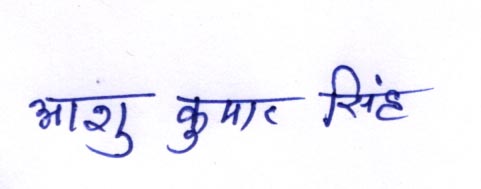 आशु कुमार सिंह